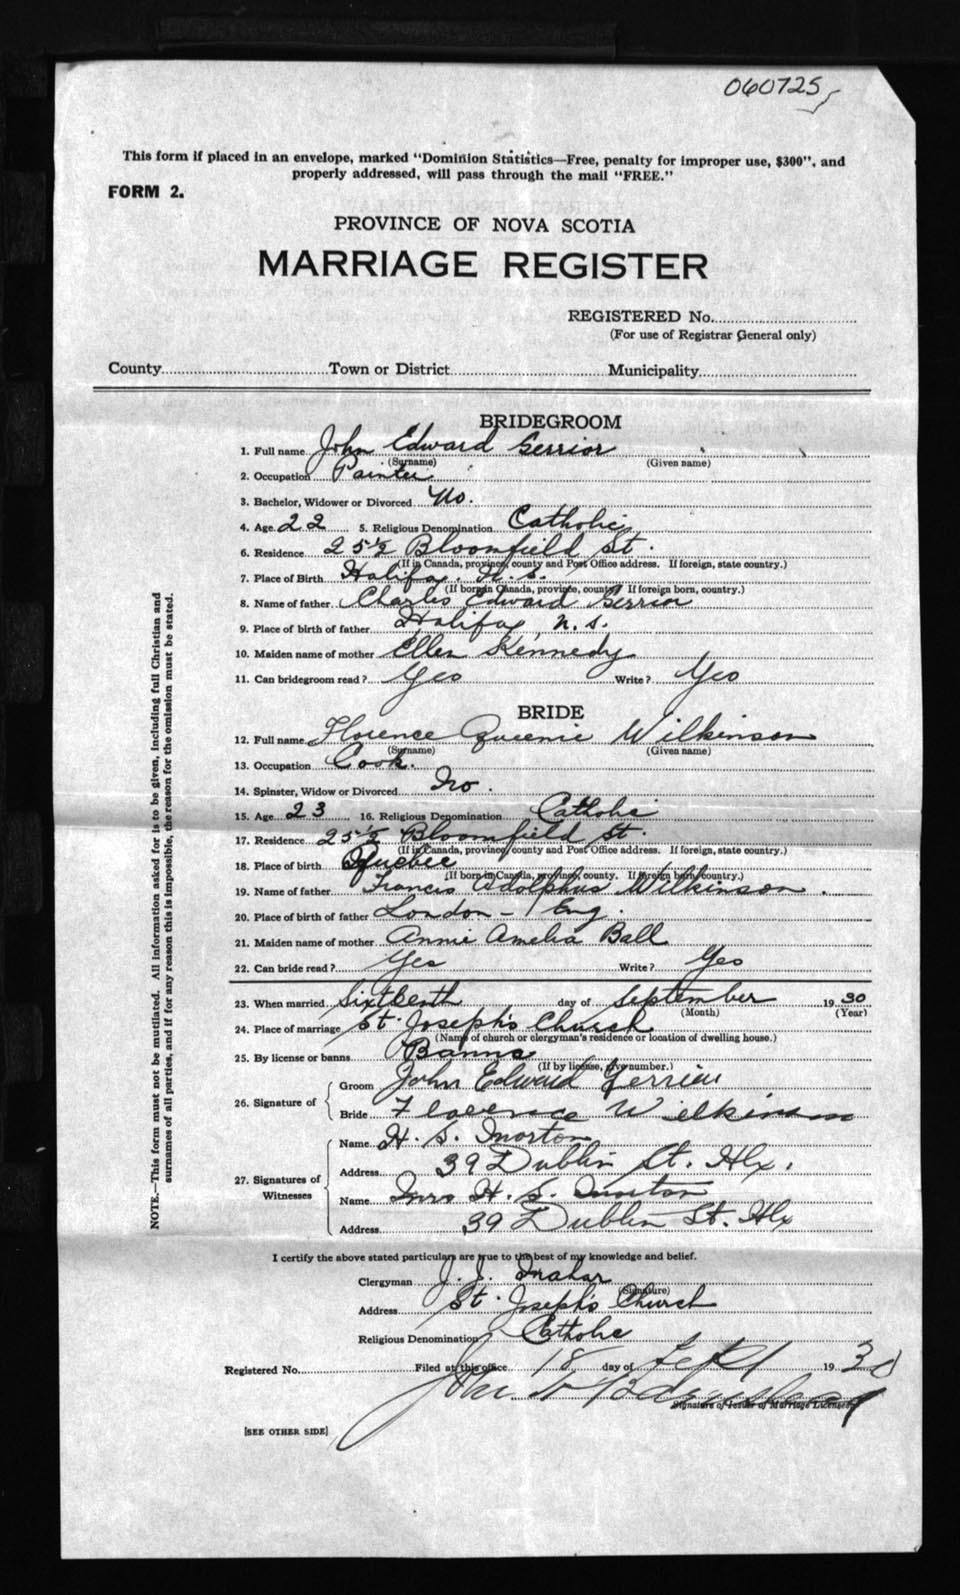 060725
This form if placed in an envelope, marked "Dominion Statistics—Free, penalty for improper use, $300", and
properly addressed, will pass through the mail "FREE."
FORM 2.
PROVINCE OF NOVA SCOTIA
MARRIAGE REGISTER
REGISTERED No.
(For use of Registrar General only)
County Town or District Municipality
BRIDEGROOM
1. Full name John Edward Gerrior
(Surname) (Given name)
2. Occupation Painter
3. Bachelor, Widower or Divorced No.
4. Age 22 5. Religious Denomination Catholic
6. Residence 25½ Bloomfield St.
(If in Canada, province, county and Post Office address. If foreign, state country.)
7. Place of Birth Halifax, N.S.
(If born in Canada, province, county. If foreign born, country.)
8. Name of father Charles Edward Gerrior
9. Place of birth of father Halifax, N.S.
10. Maiden name of mother Ellen Kennedy
11. Can bridegroom read? Yes Write? Yes
BRIDE
12. Full name Florence Queenie Wilkinson
(Surname) (Given name)
13. Occupation Cook.
14. Spinster, Widow or Divorced No.
15. Age 23 16. Religious Denomination Catholic
17. Residence 25½ Bloomfield St.
(If in Canada, province, county and Post Office address. If foreign, state country.)
18. Place of birth Quebec
(If born in Canada, province, county. If foreign born, country.)
19. Name of father Francis Adolphus Wilkinson.
20. Place of birth of father London - Eng.
21. Maiden name of mother Annie Amelia Ball
22. Can bride read? Yes Write? Yes
23. When married Sixteenth day of September 1930
(Month) (Year)
24. Place of marriage St. Joseph's Church
(Name of church or clergyman's residence or location of dwelling house.)
25. By license or banns Banns
(If by license, give number.)
26. Signature of
Groom John Edward Gerrior
Bride Florence Wilkinson
27. Signatures of Witnesses
Name H. S. Morton
Address 39 Dublin St. Hlx.
Name Mrs H. S. Morton
Address 39 Dublin St. Hlx
I certify the above stated particulars are true to the best of my knowledge and belief.
Clergyman J. J. Mahar
(Signature)
Address St. Joseph's Church
Religious Denomination Catholic
Registered No. Filed at this office 18 day of Sept 1930
Signature of Issuer of Marriage Licenses
[SEE OTHER SIDE]
NOTE.—This form must not be mutilated. All information asked for is to be given, including full Christian and
surnames of all parties, and if for any reason this is impossible, the reason for the omission must be stated.